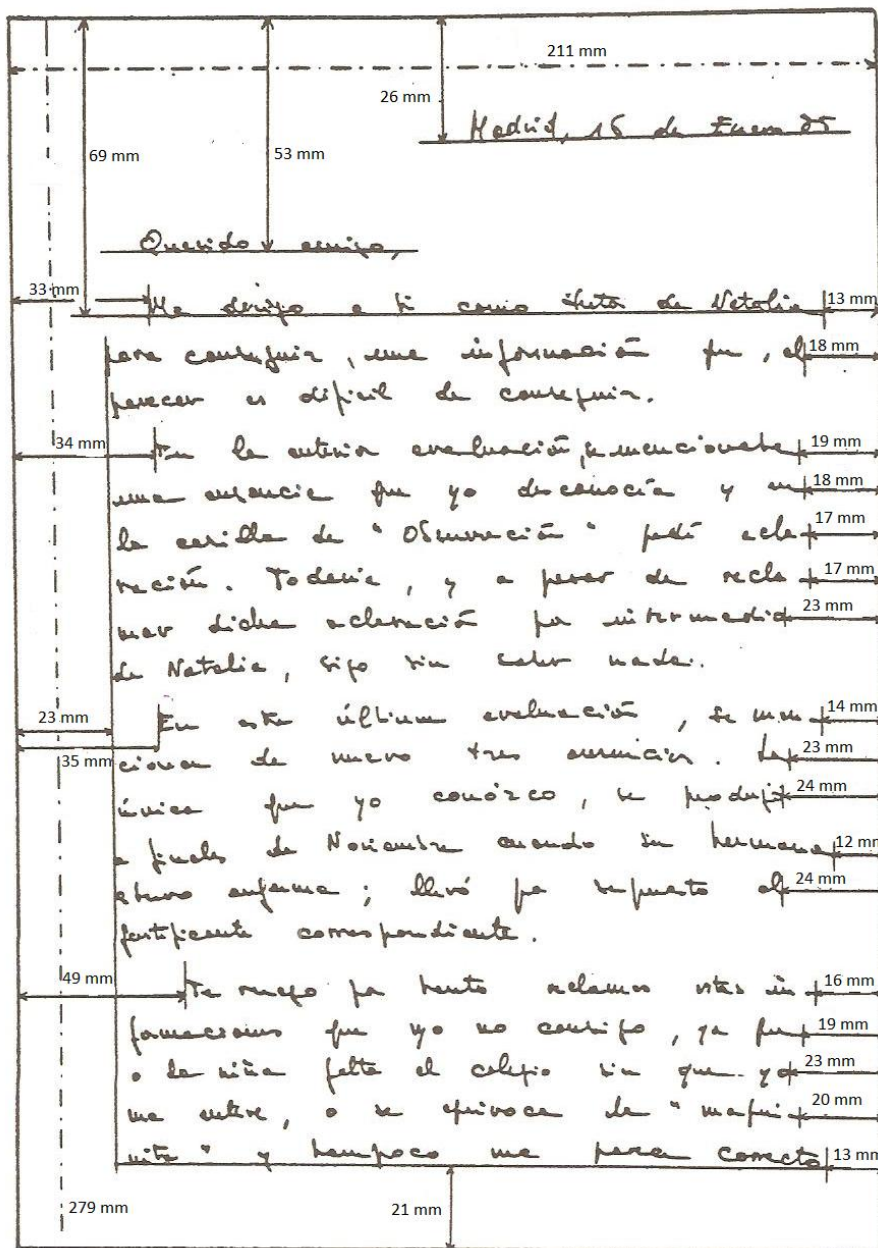 211 mm
26 mm
Madrid, 15 de Enero 85
69 mm
53 mm
Querido amigo,
33 mm
Me dirijo a ti como tutor de Natalia 13 mm
para conseguir, una información que, al 18 mm
parecer es dificil de conseguir.
34 mm
En la anterior evaluación, se mencionaba 19 mm
una ausencia que yo desconocía y en 18 mm
la casilla de "Observación" pedí acla 17 mm
ración. Todavia, y a pesar de recla 17 mm
mar dicha aclaración por intermedio 23 mm
de Natalia, sigo sin saber nada.
23 mm
En esta última evaluación, se men 14 mm
35 mm
cionan de nuevo tres ausencias. La 23 mm
única que yo conózco, se produjo 24 mm
a finales de Noviembre cuando su hermana 12 mm
estuvo enferma; llevó por supuesto el 24 mm
justificante correspondiente.
49 mm
Te ruego por tanto aclarar estas in 16 mm
formaciones que yo no consigo, ya que 19 mm
o la niña falta al colegio sin que yo 23 mm
me entere, o se equivoca la "maqui 20 mm
nita" y tampoco me parece correcto 13 mm
279 mm
21 mm